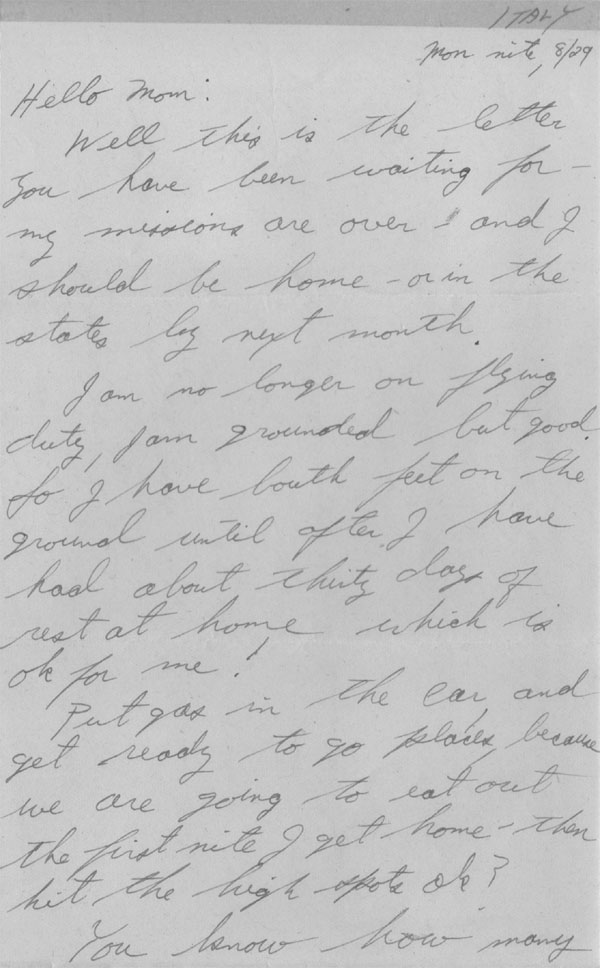 ITALY
Mon nite, 8/29
Hello Mom:
Well this is the letter
you have been waiting for -
my missions are over - and I
should be home - or in the
states by next month.
I am no longer on flying
duty, I am grounded but good.
So I have bouth feet on the
ground until after I have
had about thirty days of
rest at home which is
ok for me!
Put gas in the car, and
get ready to go places, because
we are going to eat out
the first nite I get home - then
hit the high spots ok?
You know how many